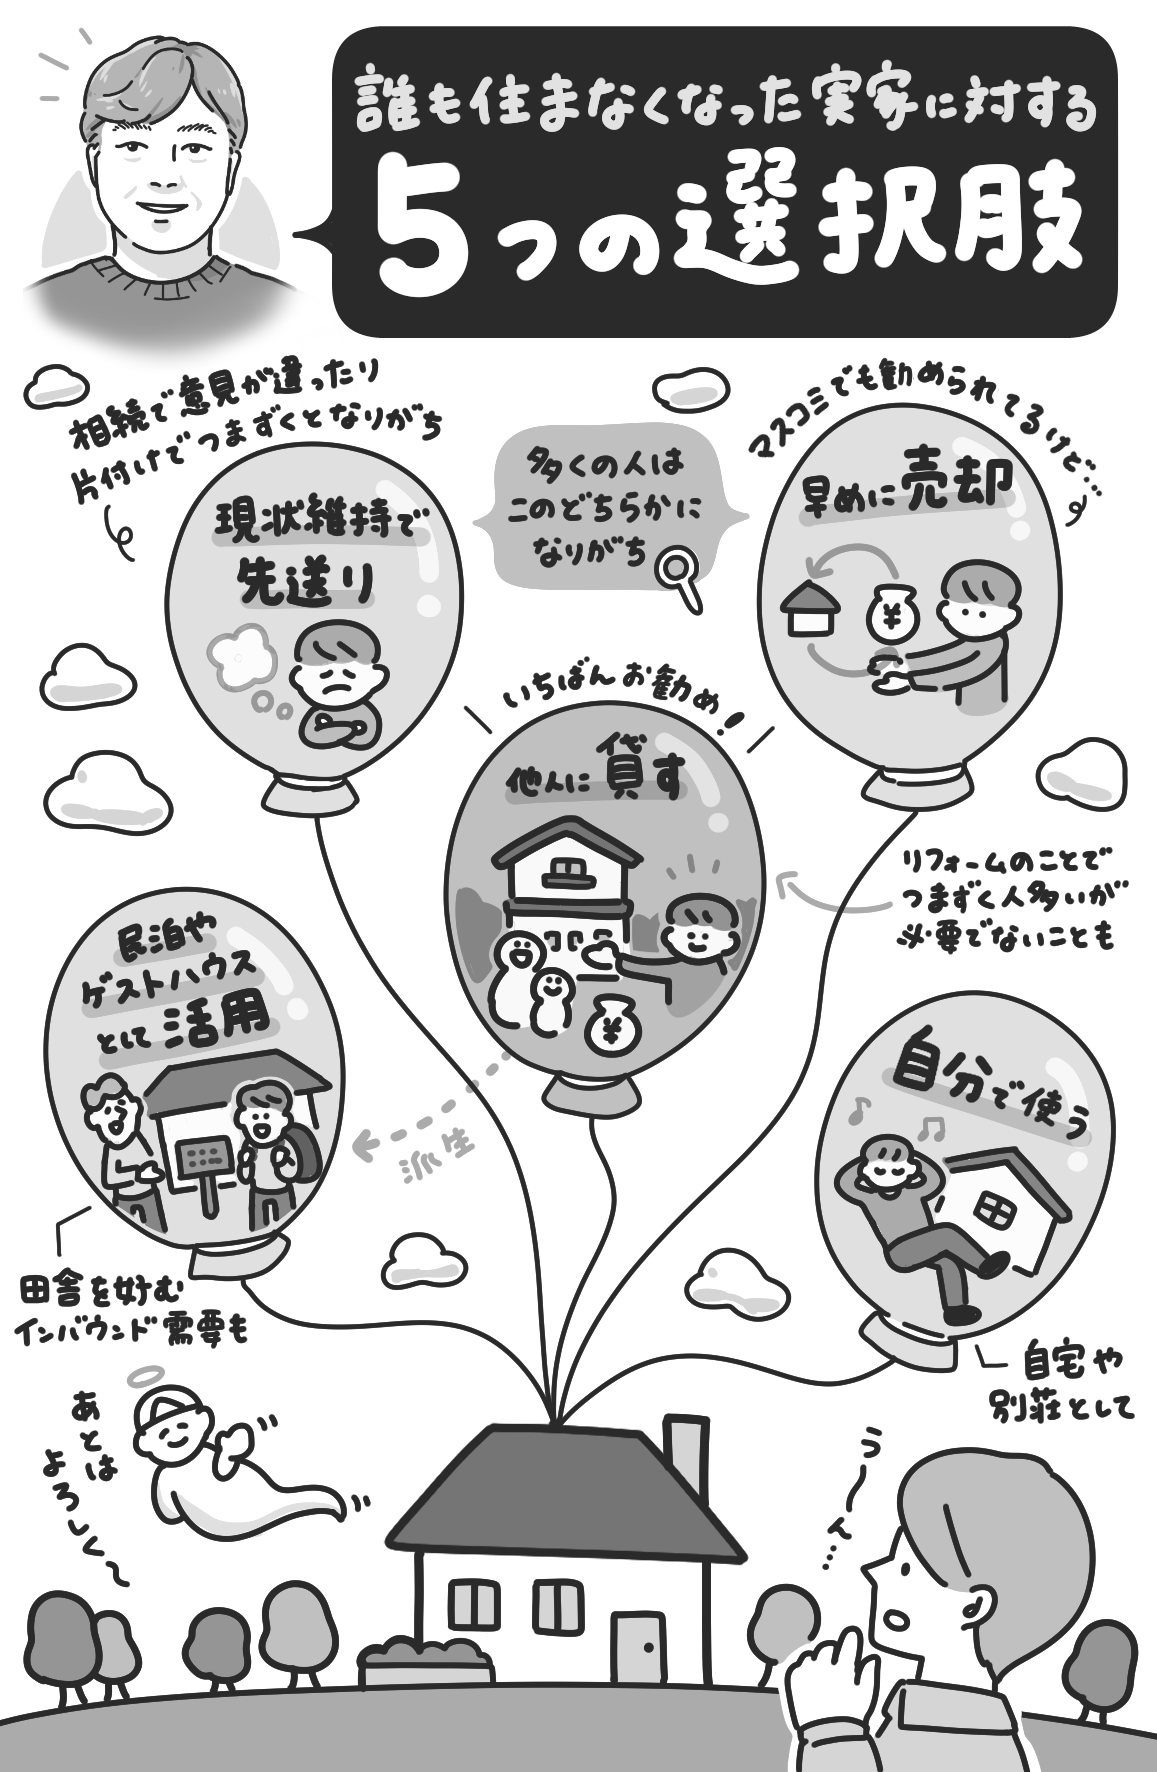 誰も住まなくなった実家に対する
5つの選択肢
相続で意見が違ったり
片付けでつまずくとなりがち
現状維持で
先送り
多くの人は
このどちらかに
なりがち
マスコミでも勧められてるけど…
早めに売却
¥
いちばんお勧め!
他人に貸す
¥
リフォームのことで
つまずく人多いが
必要でないことも
民泊や
ゲストハウス
として活用
派生
田舎を好む
インバウンド需要も
自分で使う
自宅や
別荘として
あとは
よろしく〜
う〜ん…